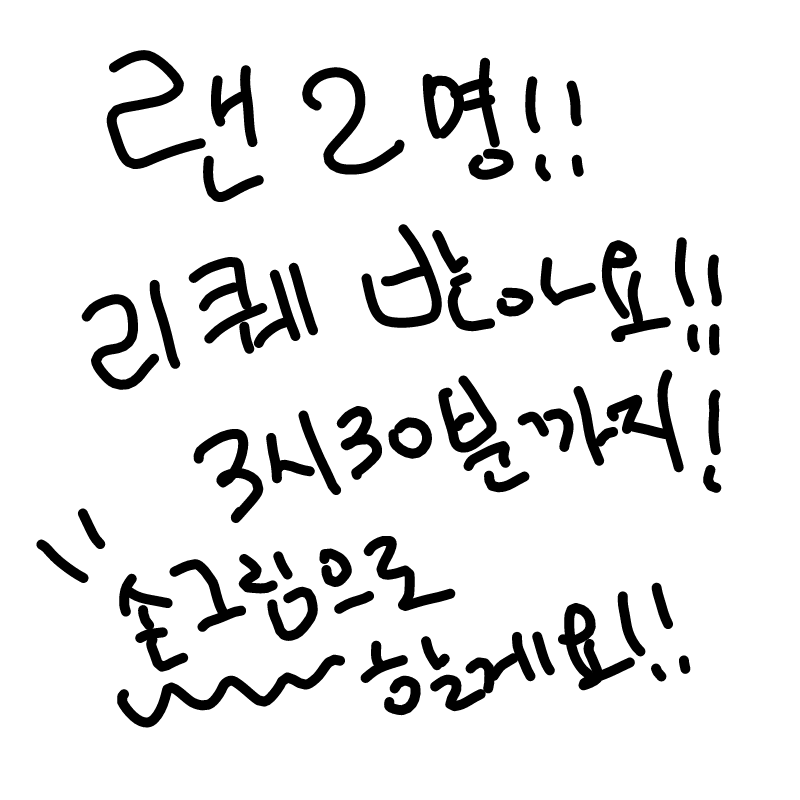 랜 2명!!
리퀘 받아요!!
3시30분까지!
손그림으로
할게요!!